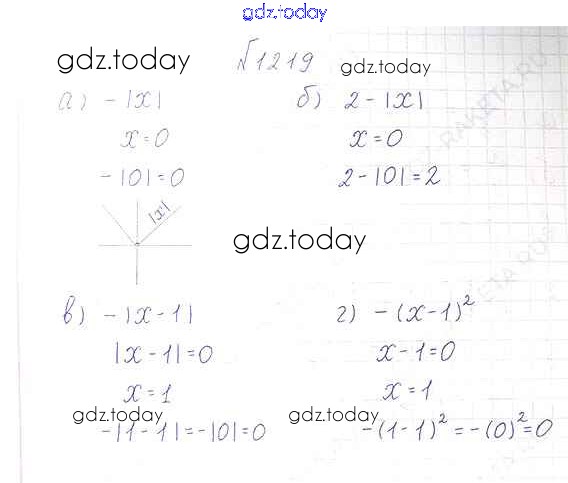 gdz.today
gdz.today №1219 gdz.today
а) -|x| б) 2-|x|
x=0 x=0
-|0|=0 2-|0|=2
|x|
gdz.today
в) -|x-1| г) -(x-1)²
|x-1|=0 x-1=0
x=1 x=1
gdz.today gdz.today
-|1-1|=-|0|=0 -(1-1)²=-(0)²=0